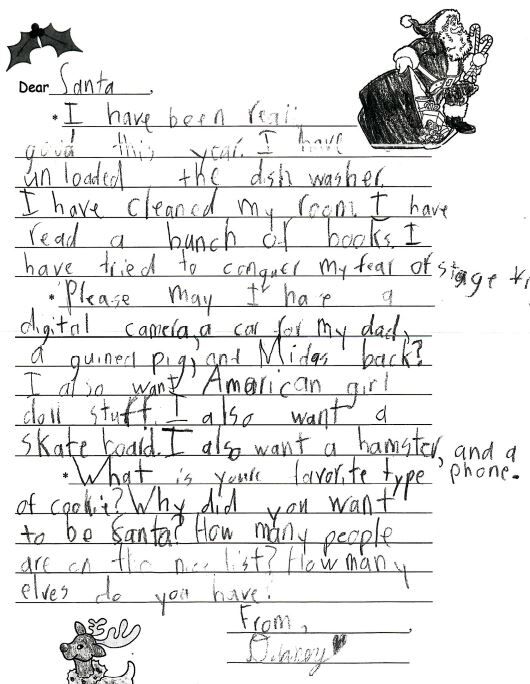 Dear Santa,
* I have been real
good this year. I have
unloaded the dish washer.
I have cleaned my room. I have
read a bunch of books. I
have tried to conquer my fear of stage
* Please may I have a
digital camera, a car for my dad,
a guined pig, and Midas back?
I also want American girl
doll stuff. I also want a
skate board. I also want a hamster, and a
phone.
* What is youre favorite type
of cookie? Why did you want
to be Santa? How many people
are on the nice list? How many
elves do you have?
From,